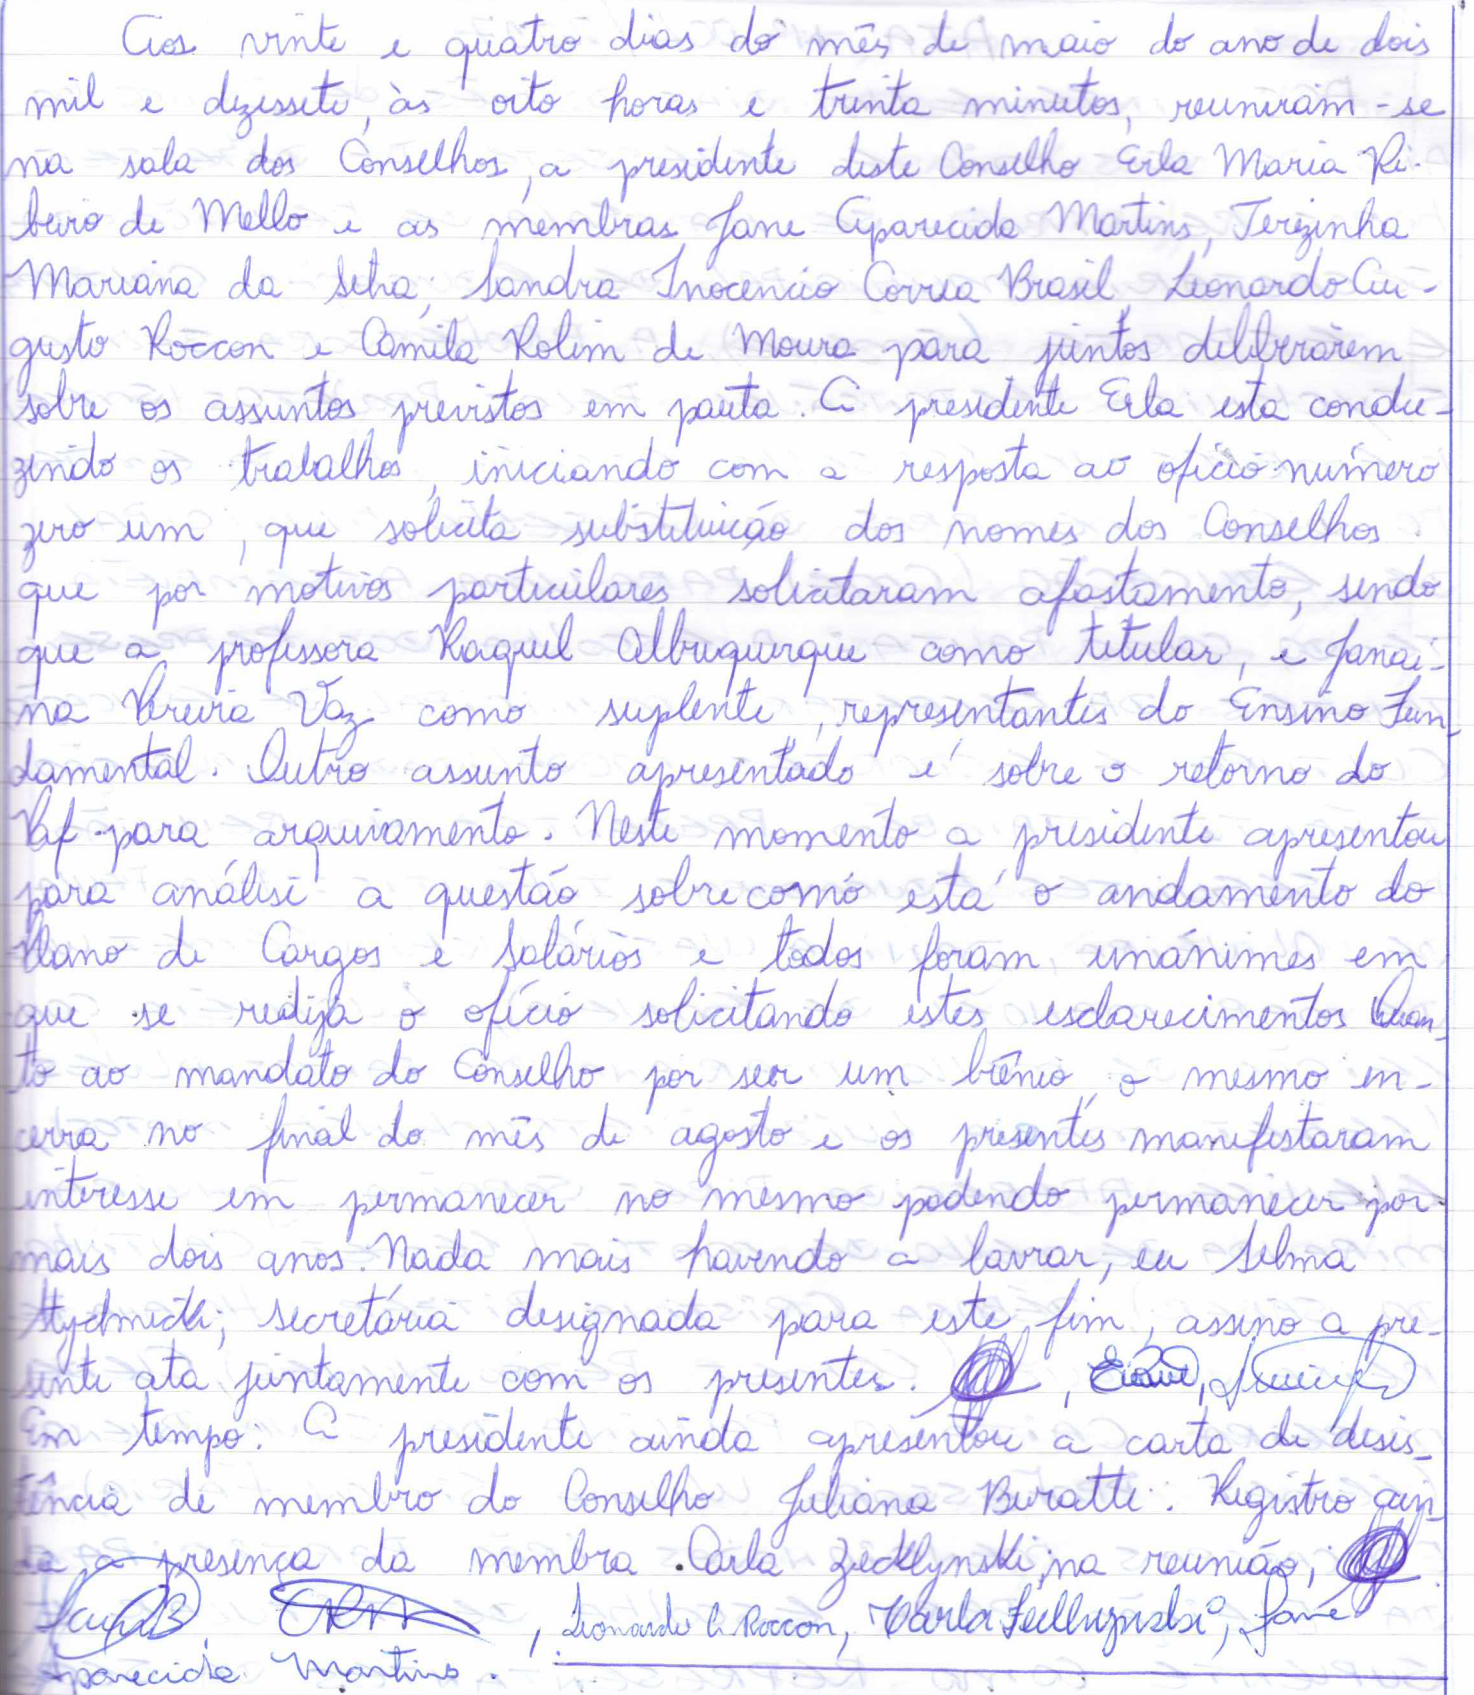 Aos vinte e quatro dias do mês de maio do ano de dois
mil e dezessete, às oito horas e trinta minutos, reuniram-se
na sala dos Conselhos, a presidente deste Conselho Erla Maria Ri-
beiro de Mello e as membras Jane Aparecida Martins, Terezinha
Mariana da Silva, Sandra Inocencio Correa Brasil, Leonardo Au-
gusto Roccon e Camila Rolim de Moura para juntos deliberarem
sobre os assuntos previstos em pauta. A presidente Erla esta condu-
zindo os trabalhos, iniciando com a resposta ao ofício número
zero um, que solicita substituição dos nomes dos Conselhos
que por motivos particulares solicitaram afastamento, sendo
que a professora Raquel Albuquerque como titular, e Janaí-
na Pereira Vaz como suplente, representantes do Ensino Fun-
damental. Outro assunto apresentado é sobre o retorno do
Paf para arquivamento. Neste momento a presidente apresentou
para análise a questão sobre como está o andamento do
Plano de Cargos e Salários e todos foram unânimes em
que se redija o ofício solicitando estes esclarecimentos Quan-
to ao mandato do Conselho por ser um biênio, o mesmo en-
cerra no final do mês de agosto e os presentes manifestaram
interesse em permanecer no mesmo podendo permanecer por
mais dois anos. Nada mais havendo a lavrar, eu Selma
secretária designada para este fim, assino a pre-
sente ata juntamente com os presentes.
Em tempo: A presidente ainda apresentou a carta de desis-
tência de membro do Conselho Juliana Buratti. Registro ain-
da a presença da membra Carla na reunião,
Leonardo A. Roccon, Carla Jane
Aparecida Martins.